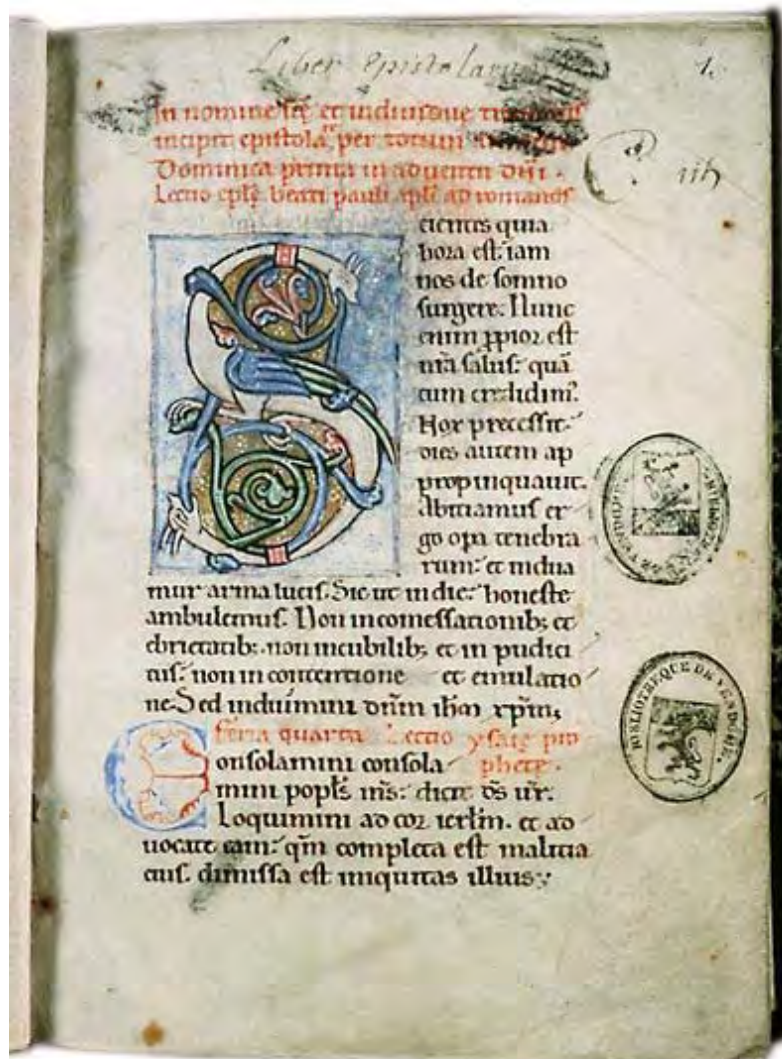 Liber epistolarum
1.
In nomine sc̃e et indiuidue trinitatis
incipit epistolaꝝ per totum
Dominica prima in aduentu dñi.
Lectio epl̃e beati pauli apl̃i ad romanos
S cientes quia
hora est iam
nos de somno
surgere. Nunc
enim ꝓpior est
nr̃a salus. quã
cum credidimꝰ.
Nox precessit.
dies autem ap
propinquauit.
Abiciamus er
go opa tenebra
rum. et indua
mur arma lucis. Sic ut in die. honeste
ambulemus. Non in comessationibꝫ et
ebrietatibꝫ. non in cubilibꝫ et in pudici
tiis. non in contentione et emulatio
ne. Sed induimini dñm ihm xpm;
feria quarta Lectio ysaie pro
phete.
C onsolamini consola
mini popl̃s ms̃. dicit ds̃ ur̃.
Loquimini ad cor ierlm̃. et ad
uocate eam. qm̃ completa est malitia
eius. dimissa est iniquitas illius;
BIBLIOTHEQUE DE VENDOME.